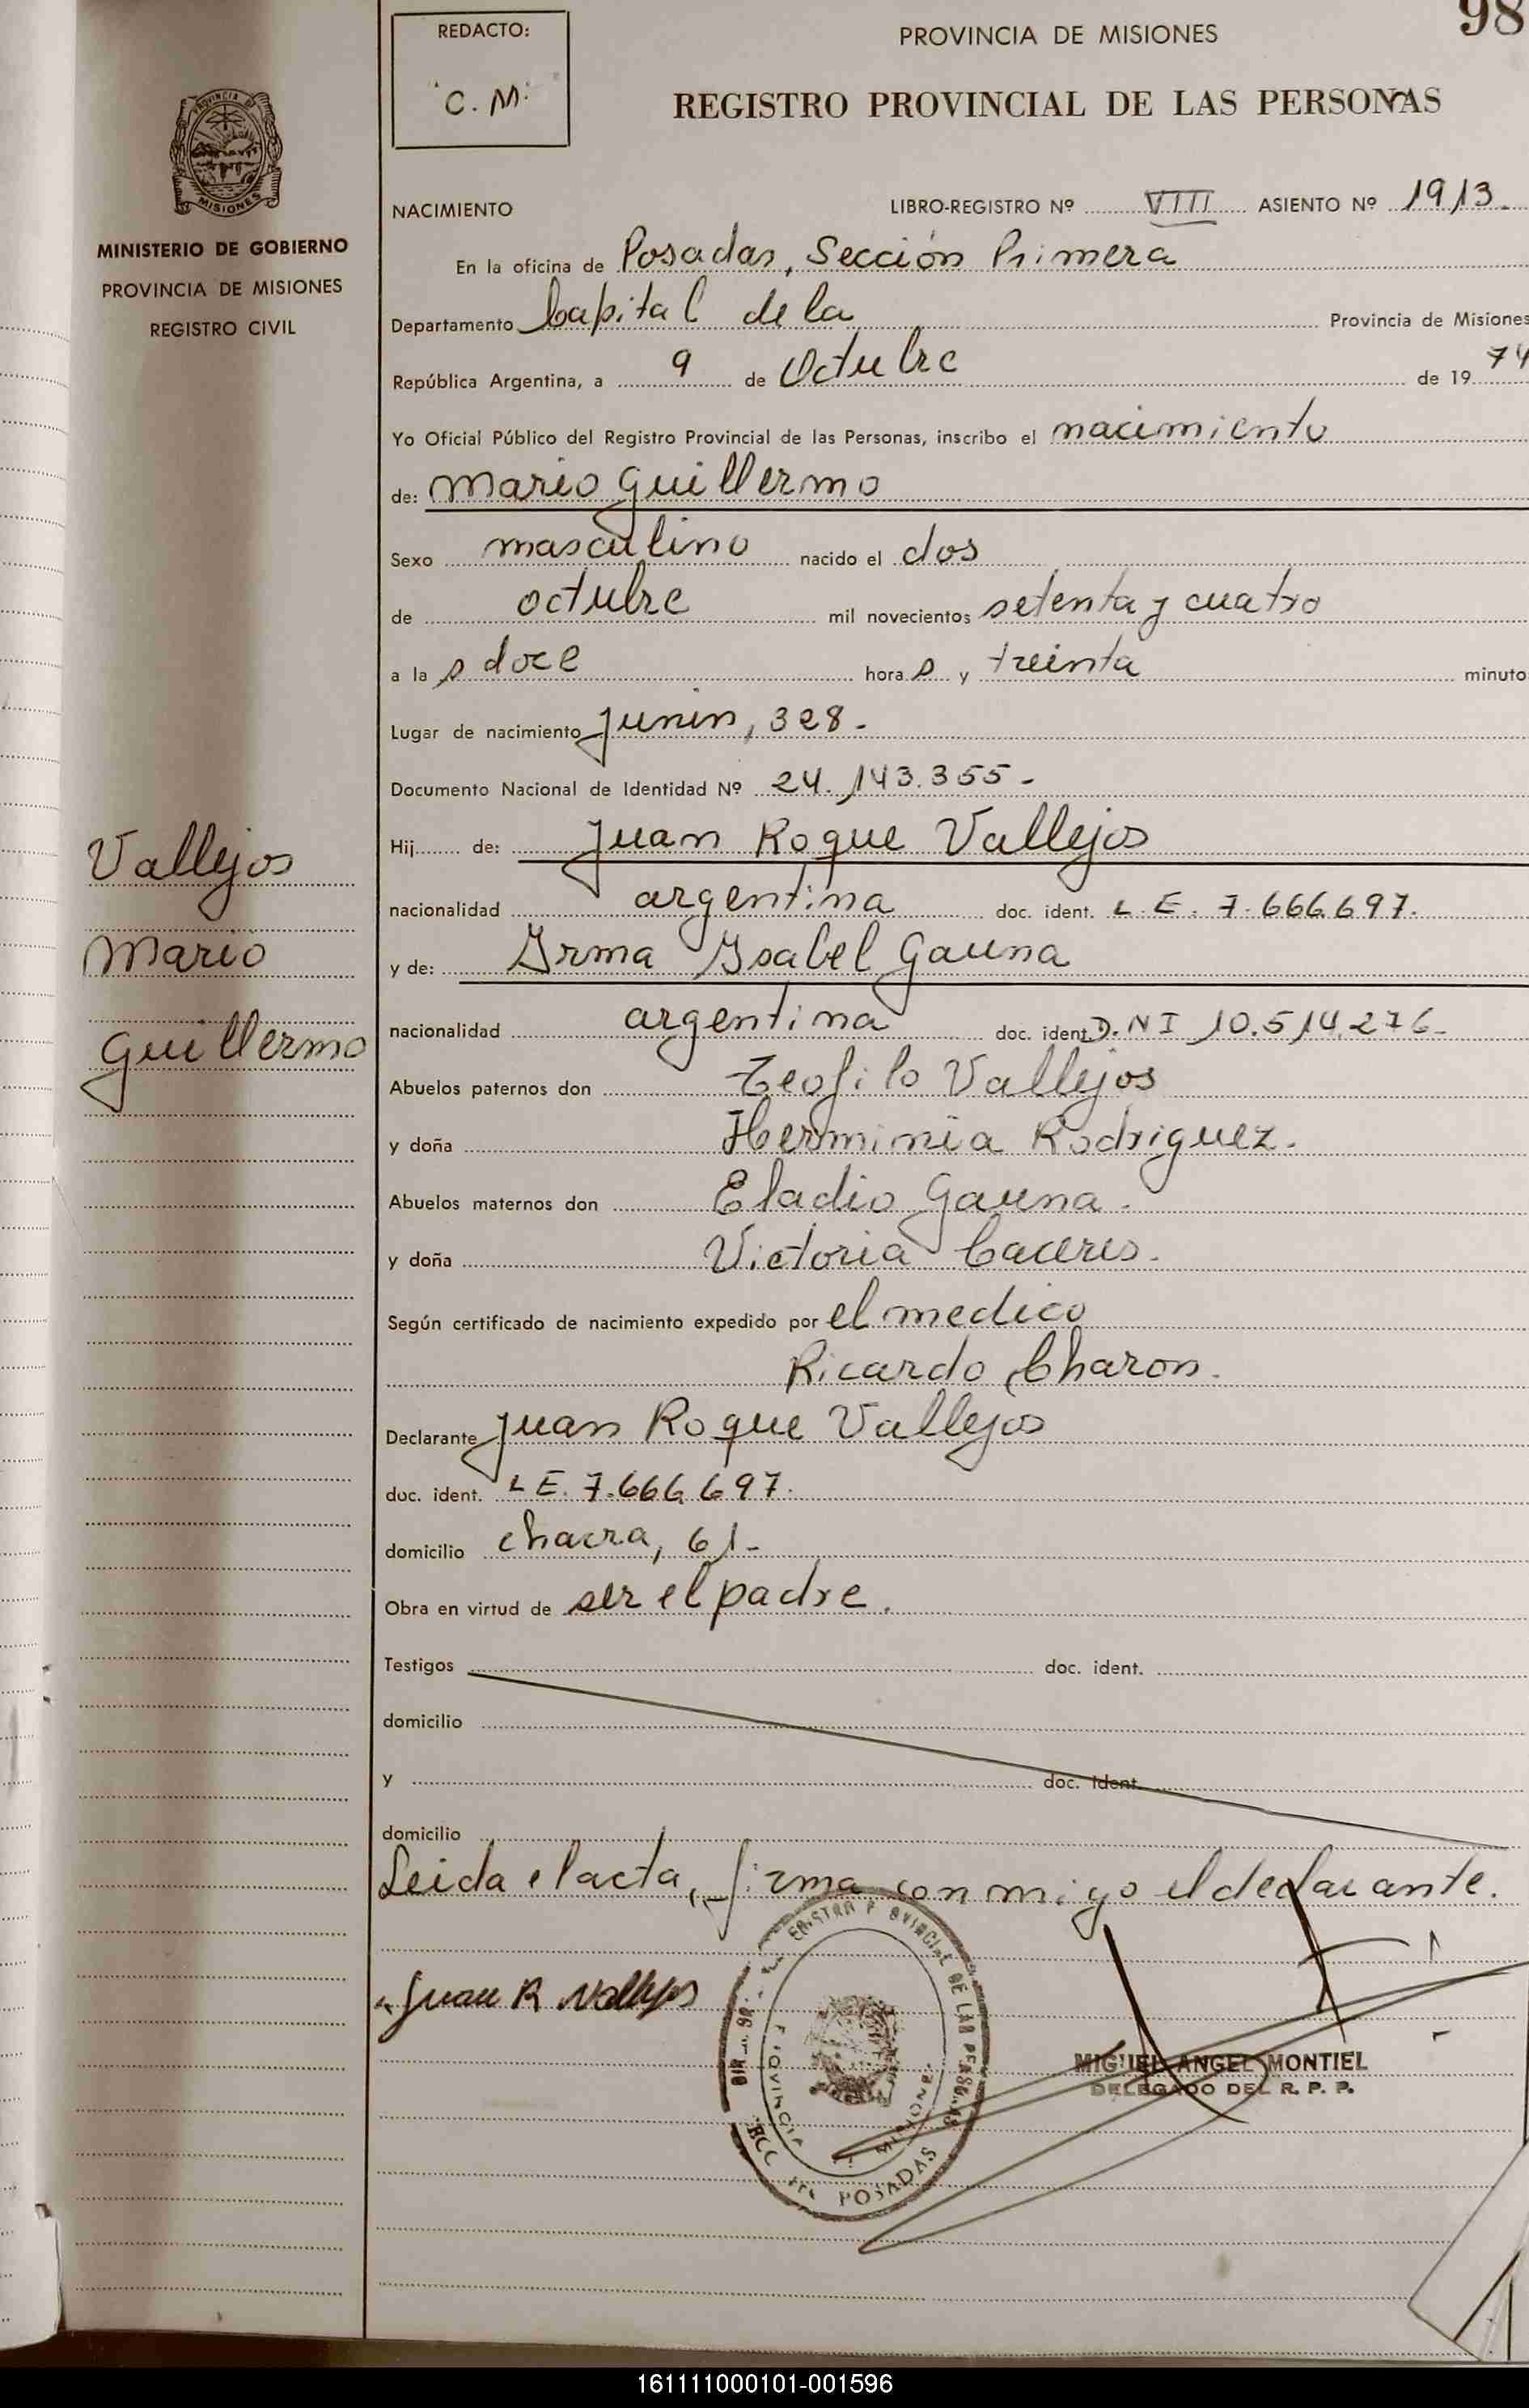 98
REDACTO:
C. M.
PROVINCIA DE MISIONES
REGISTRO PROVINCIAL DE LAS PERSONAS
PROVINCIA DE
MISIONES
MINISTERIO DE GOBIERNO
PROVINCIA DE MISIONES
REGISTRO CIVIL
NACIMIENTO LIBRO-REGISTRO Nº VIII ASIENTO Nº 1913
En la oficina de Posadas, Sección Primera
Departamento Capital de la Provincia de Misiones
República Argentina, a 9 de Octubre de 19 74
Yo Oficial Público del Registro Provincial de las Personas, inscribo el nacimiento
de: Mario Guillermo
Sexo masculino nacido el dos
de octubre mil novecientos setenta y cuatro
a la s doce hora s y treinta minuto
Lugar de nacimiento Junin, 328.-
Documento Nacional de Identidad Nº 24.143.355-
Hij de: Juan Roque Vallejos
nacionalidad argentina doc. ident. L.E. 7.666.697.
y de: Irma Ysabel Gauna
nacionalidad argentina doc. ident. D.NI 10.514.276-
Abuelos paternos don Teofilo Vallejos
y doña Herminia Rodriguez.
Abuelos maternos don Eladio Gauna.
y doña Victoria Caceres.
Según certificado de nacimiento expedido por el medico
Ricardo Charon.
Declarante Juan Roque Vallejos
doc. ident. L E. 7.666.697.
domicilio chacra, 61-
Obra en virtud de ser el padre.
Testigos doc. ident.
domicilio
y doc. ident.
domicilio
Leida el acta, firma conmigo el declarante.
Vallejos
Mario
Guillermo
Juan R Vallejos
POSADAS
MIGUEL ANGEL MONTIEL
DELEGADO DEL R. P. P.
161111000101-001596